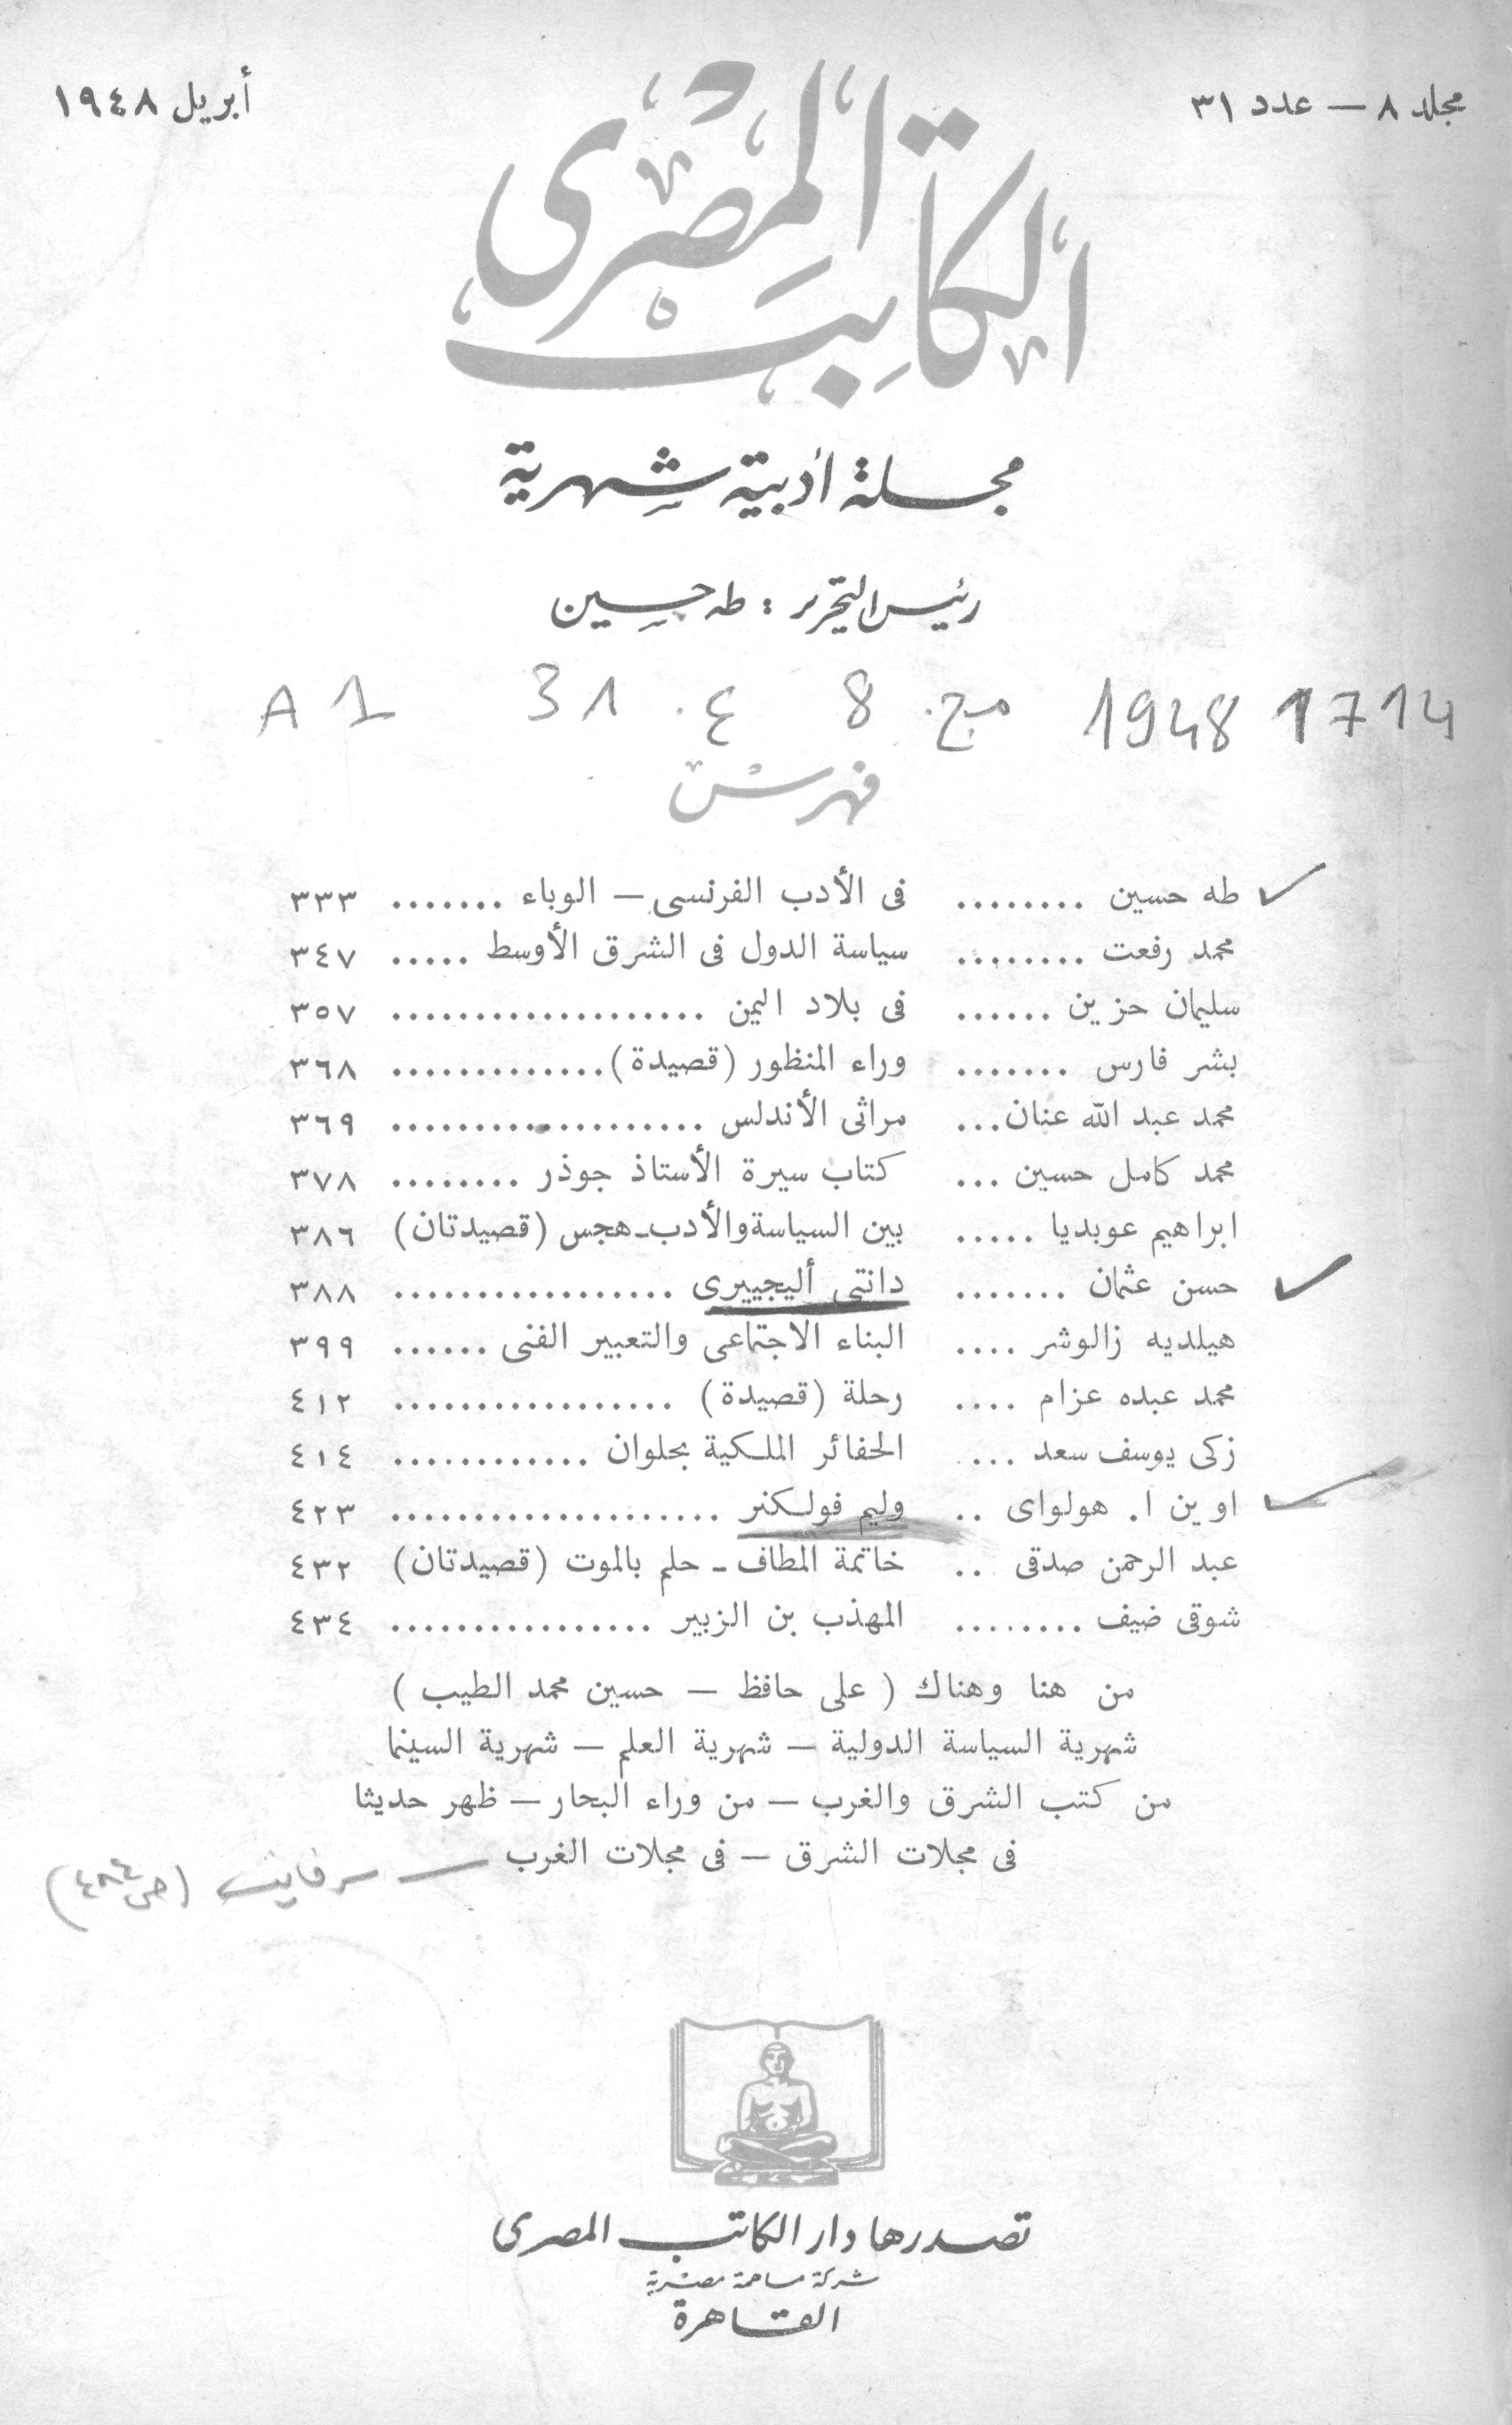 مجلد ٨ — عدد ٣١
أبريل ١٩٤٨
الكاتب المصرى
مجلة أدبية شهرية
رئيس التحرير : طه حسين
A 1 31 ع. 8 مج. 1948 1714
فهرس
طه حسين ........ فى الأدب الفرنسى — الوباء ....... ٣٣٣
محمد رفعت ........ سياسة الدول فى الشرق الأوسط ..... ٣٤٧
سليمان حزين ...... فى بلاد اليمن ................... ٣٥٧
بشر فارس ....... وراء المنظور (قصيدة) ............. ٣٦٨
محمد عبد الله عنان ... مراثى الأندلس ................... ٣٦٩
محمد كامل حسين ... كتاب سيرة الأستاذ جوذر ........ ٣٧٨
ابراهيم عوبديا ..... بين السياسة والأدب ـ هجس (قصيدتان) ٣٨٦
حسن عثمان ....... دانتى أليجييرى ................. ٣٨٨
هيلديه زالوشر .... البناء الاجتماعى والتعبير الفنى ...... ٣٩٩
محمد عبده عزام .... رحلة (قصيدة) ................. ٤١٢
زكى يوسف سعد ... الحفائر الملكية بحلوان ............ ٤١٤
اوين ا. هولواى .. وليم فولكنر .................... ٤٢٣
عبد الرحمن صدقى .. خاتمة المطاف ـ حلم بالموت (قصيدتان) ٤٣٢
شوقى ضيف ........ المهذب بن الزبير ................ ٤٣٤
من هنا وهناك ( على حافظ — حسين محمد الطيب )
شهرية السياسة الدولية — شهرية العلم — شهرية السينما
من كتب الشرق والغرب — من وراء البحار — ظهر حديثا
فى مجلات الشرق — فى مجلات الغرب
(ص ٤٨٤)
تصدرها دار الكاتب المصرى
شركة مساهمة مصرية
القاهرة